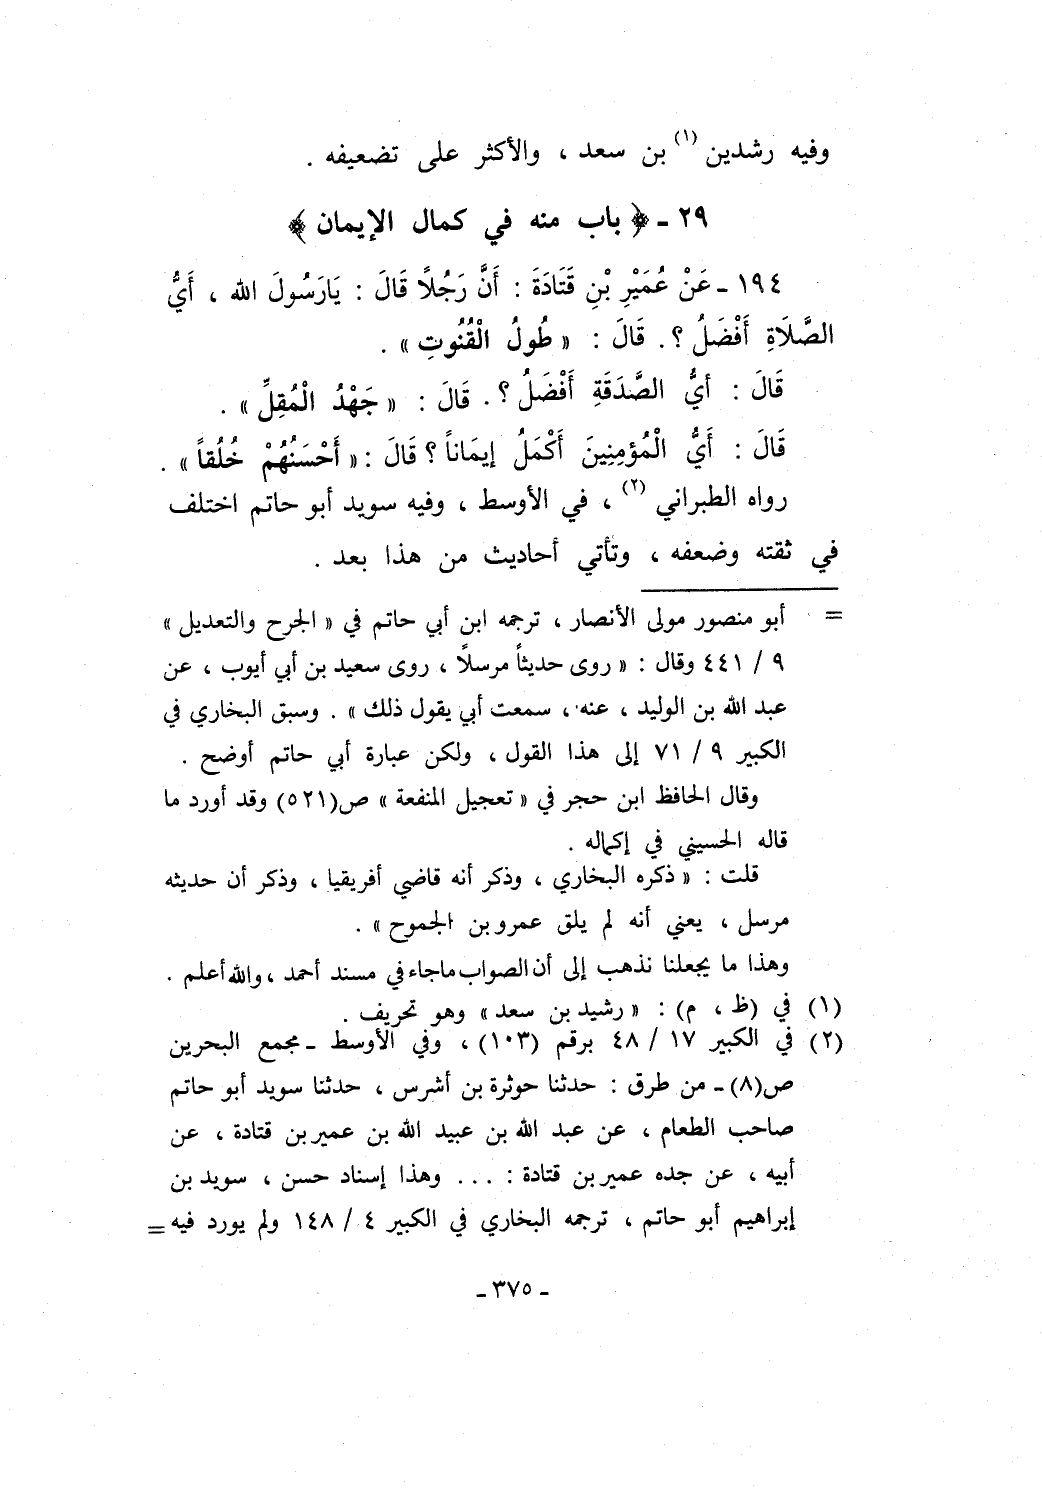 وفيه رشدين (١) بن سعد ، والأكثر على تضعيفه .
٢٩ ـ ﴿ باب منه في كمال الإيمان ﴾
١٩٤ ـ عَنْ عُمَيْرِ بْنِ قَتَادَةَ : أَنَّ رَجُلاً قَالَ : يَارَسُولَ الله ، أَيُّ
الصَّلَاةِ أَفْضَلُ ؟. قَالَ : « طُولُ الْقُنُوتِ » .
قَالَ : أَيُّ الصَّدَقَةِ أَفْضَلُ ؟. قَالَ : « جَهْدُ الْمُقِلِّ » .
قَالَ : أَيُّ الْمُؤمِنِينَ أَكْمَلُ إِيمَاناً ؟ قَالَ : « أَحْسَنُهُمْ خُلُقاً » .
رواه الطبراني (٢) ، في الأوسط ، وفيه سويد أبو حاتم اختلف
في ثقته وضعفه ، وتأتي أحاديث من هذا بعد .
= أبو منصور مولى الأنصار ، ترجمه ابن أبي حاتم في « الجرح والتعديل »
٩ / ٤٤١ وقال : « روى حديثاً مرسلاً ، روى سعيد بن أبي أيوب ، عن
عبد الله بن الوليد ، عنه ، سمعت أبي يقول ذلك » . وسبق البخاري في
الكبير ٩ / ٧١ إلى هذا القول ، ولكن عبارة أبي حاتم أوضح .
وقال الحافظ ابن حجر في « تعجيل المنفعة » ص(٥٢١) وقد أورد ما
قاله الحسيني في إكماله .
قلت : « ذكره البخاري ، وذكر أنه قاضي أفريقيا ، وذكر أن حديثه
مرسل ، يعني أنه لم يلق عمرو بن الجموح » .
وهذا ما يجعلنا نذهب إلى أن الصواب ماجاء في مسند أحمد ، والله أعلم .
(١) في (ظ ، م) : « رشيد بن سعد » وهو تحريف .
(٢) في الكبير ١٧ / ٤٨ برقم (١٠٣) ، وفي الأوسط ـ مجمع البحرين
ص(٨) ـ من طرق : حدثنا حوثرة بن أشرس ، حدثنا سويد أبو حاتم
صاحب الطعام ، عن عبد الله بن عبيد الله بن عمير بن قتادة ، عن
أبيه ، عن جده عمير بن قتادة : ... وهذا إسناد حسن ، سويد بن
إبراهيم أبو حاتم ، ترجمه البخاري في الكبير ٤ / ١٤٨ ولم يورد فيه =
ـ ٣٧٥ ـ